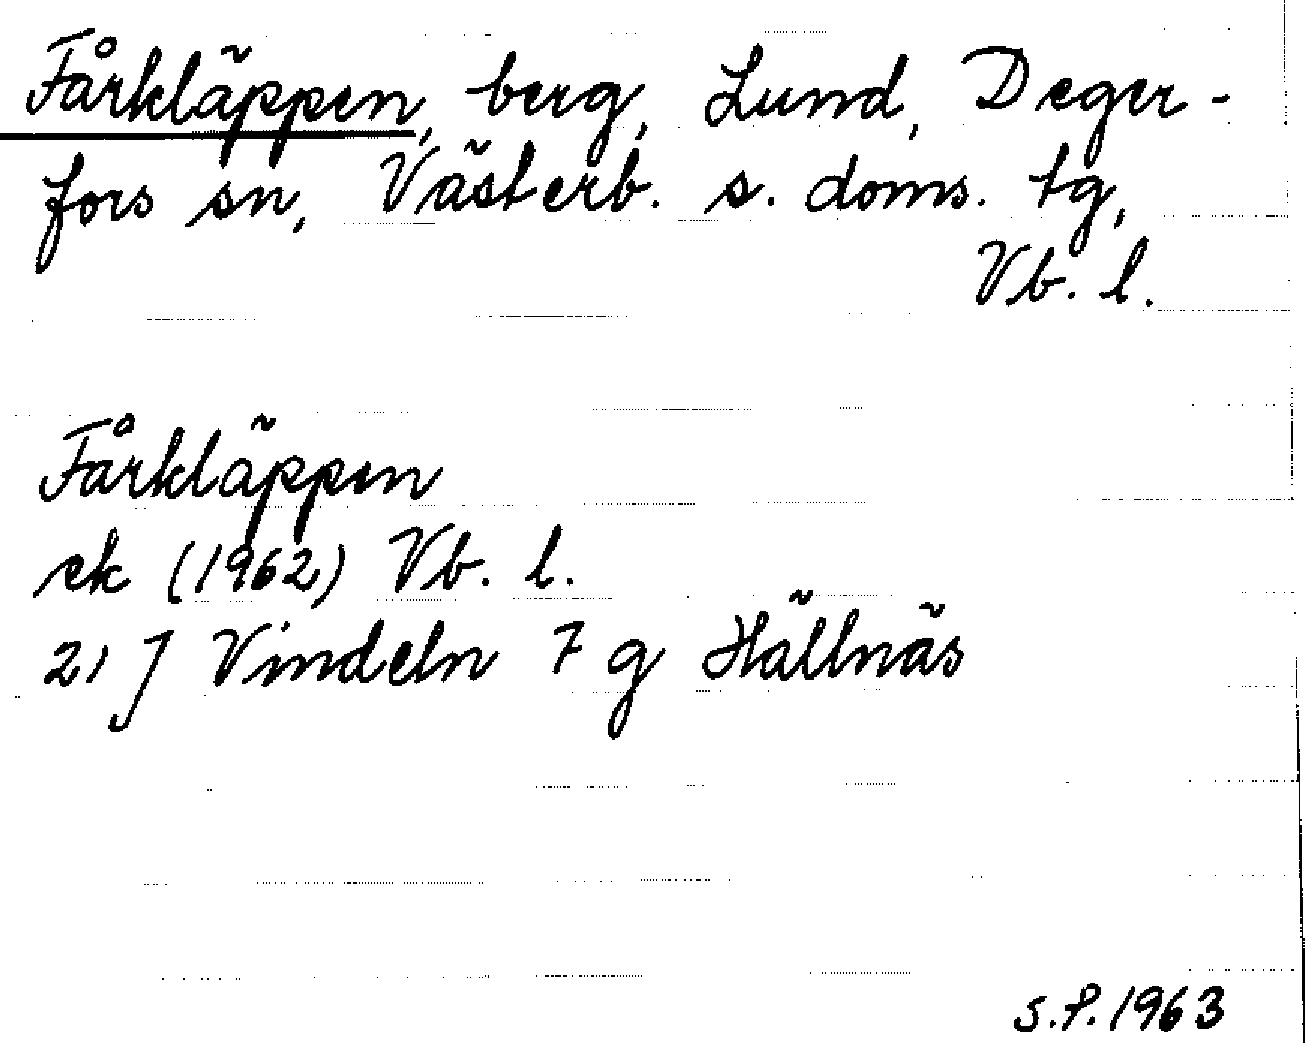 Fårkläppen, berg, Lund, Deger-
fors sn, Västerb. s. doms. tg,
Vb. l.
Fårkläppen
ek (1962) Vb. l.
21 J Vindeln 7 g Hällnäs
S.P. 1963